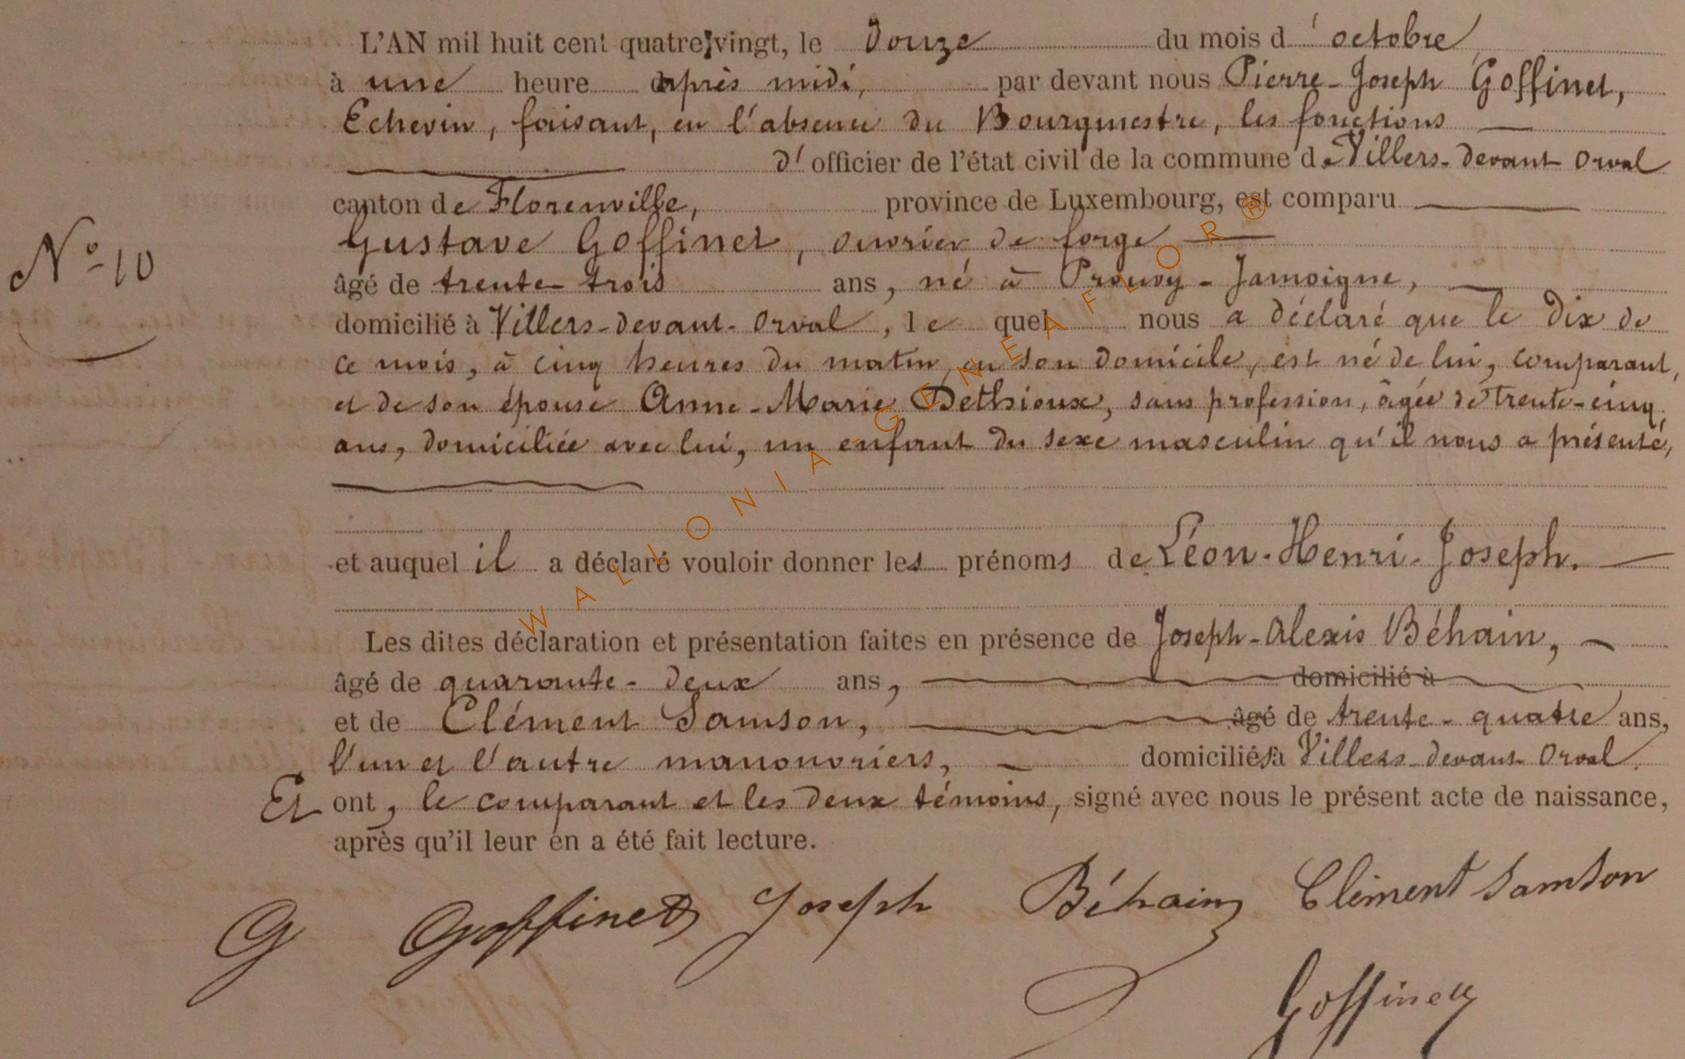 L'AN mil huit cent quatre-vingt, le douze du mois d'octobre
à une heure après midi, par devant nous Pierre-Joseph Goffinet,
Echevin, faisant, en l'absence du Bourgmestre, les fonctions
d'officier de l'état civil de la commune de Villers-devant-Orval
canton de Florenville, province de Luxembourg, est comparu
Gustave Goffinet, ouvrier de forge
N° 10
âgé de trente-trois ans, né à Prouvy-Jamoigne,
domicilié à Villers-devant-Orval, lequel nous a déclaré que le dix de
ce mois, à cinq heures du matin, en son domicile, est né de lui, comparant,
et de son épouse Anne-Marie Dethioux, sans profession, âgée de trente-cinq
ans, domiciliée avec lui, un enfant du sexe masculin qu'il nous a présenté,
et auquel il a déclaré vouloir donner les prénoms de Léon-Henri-Joseph.
Les dites déclaration et présentation faites en présence de Joseph-Alexis Béhain,
âgé de quarante-deux ans, domicilié à
et de Clément Samson, âgé de trente-quatre ans,
l'un et l'autre manouvriers, domiciliés à Villers-devant-Orval.
Et ont, le comparant et les deux témoins, signé avec nous le présent acte de naissance,
après qu'il leur en a été fait lecture.
G Goffinet Joseph Béhain Clément Samson
Goffinet
WALLONIA GENEAFLOR ®